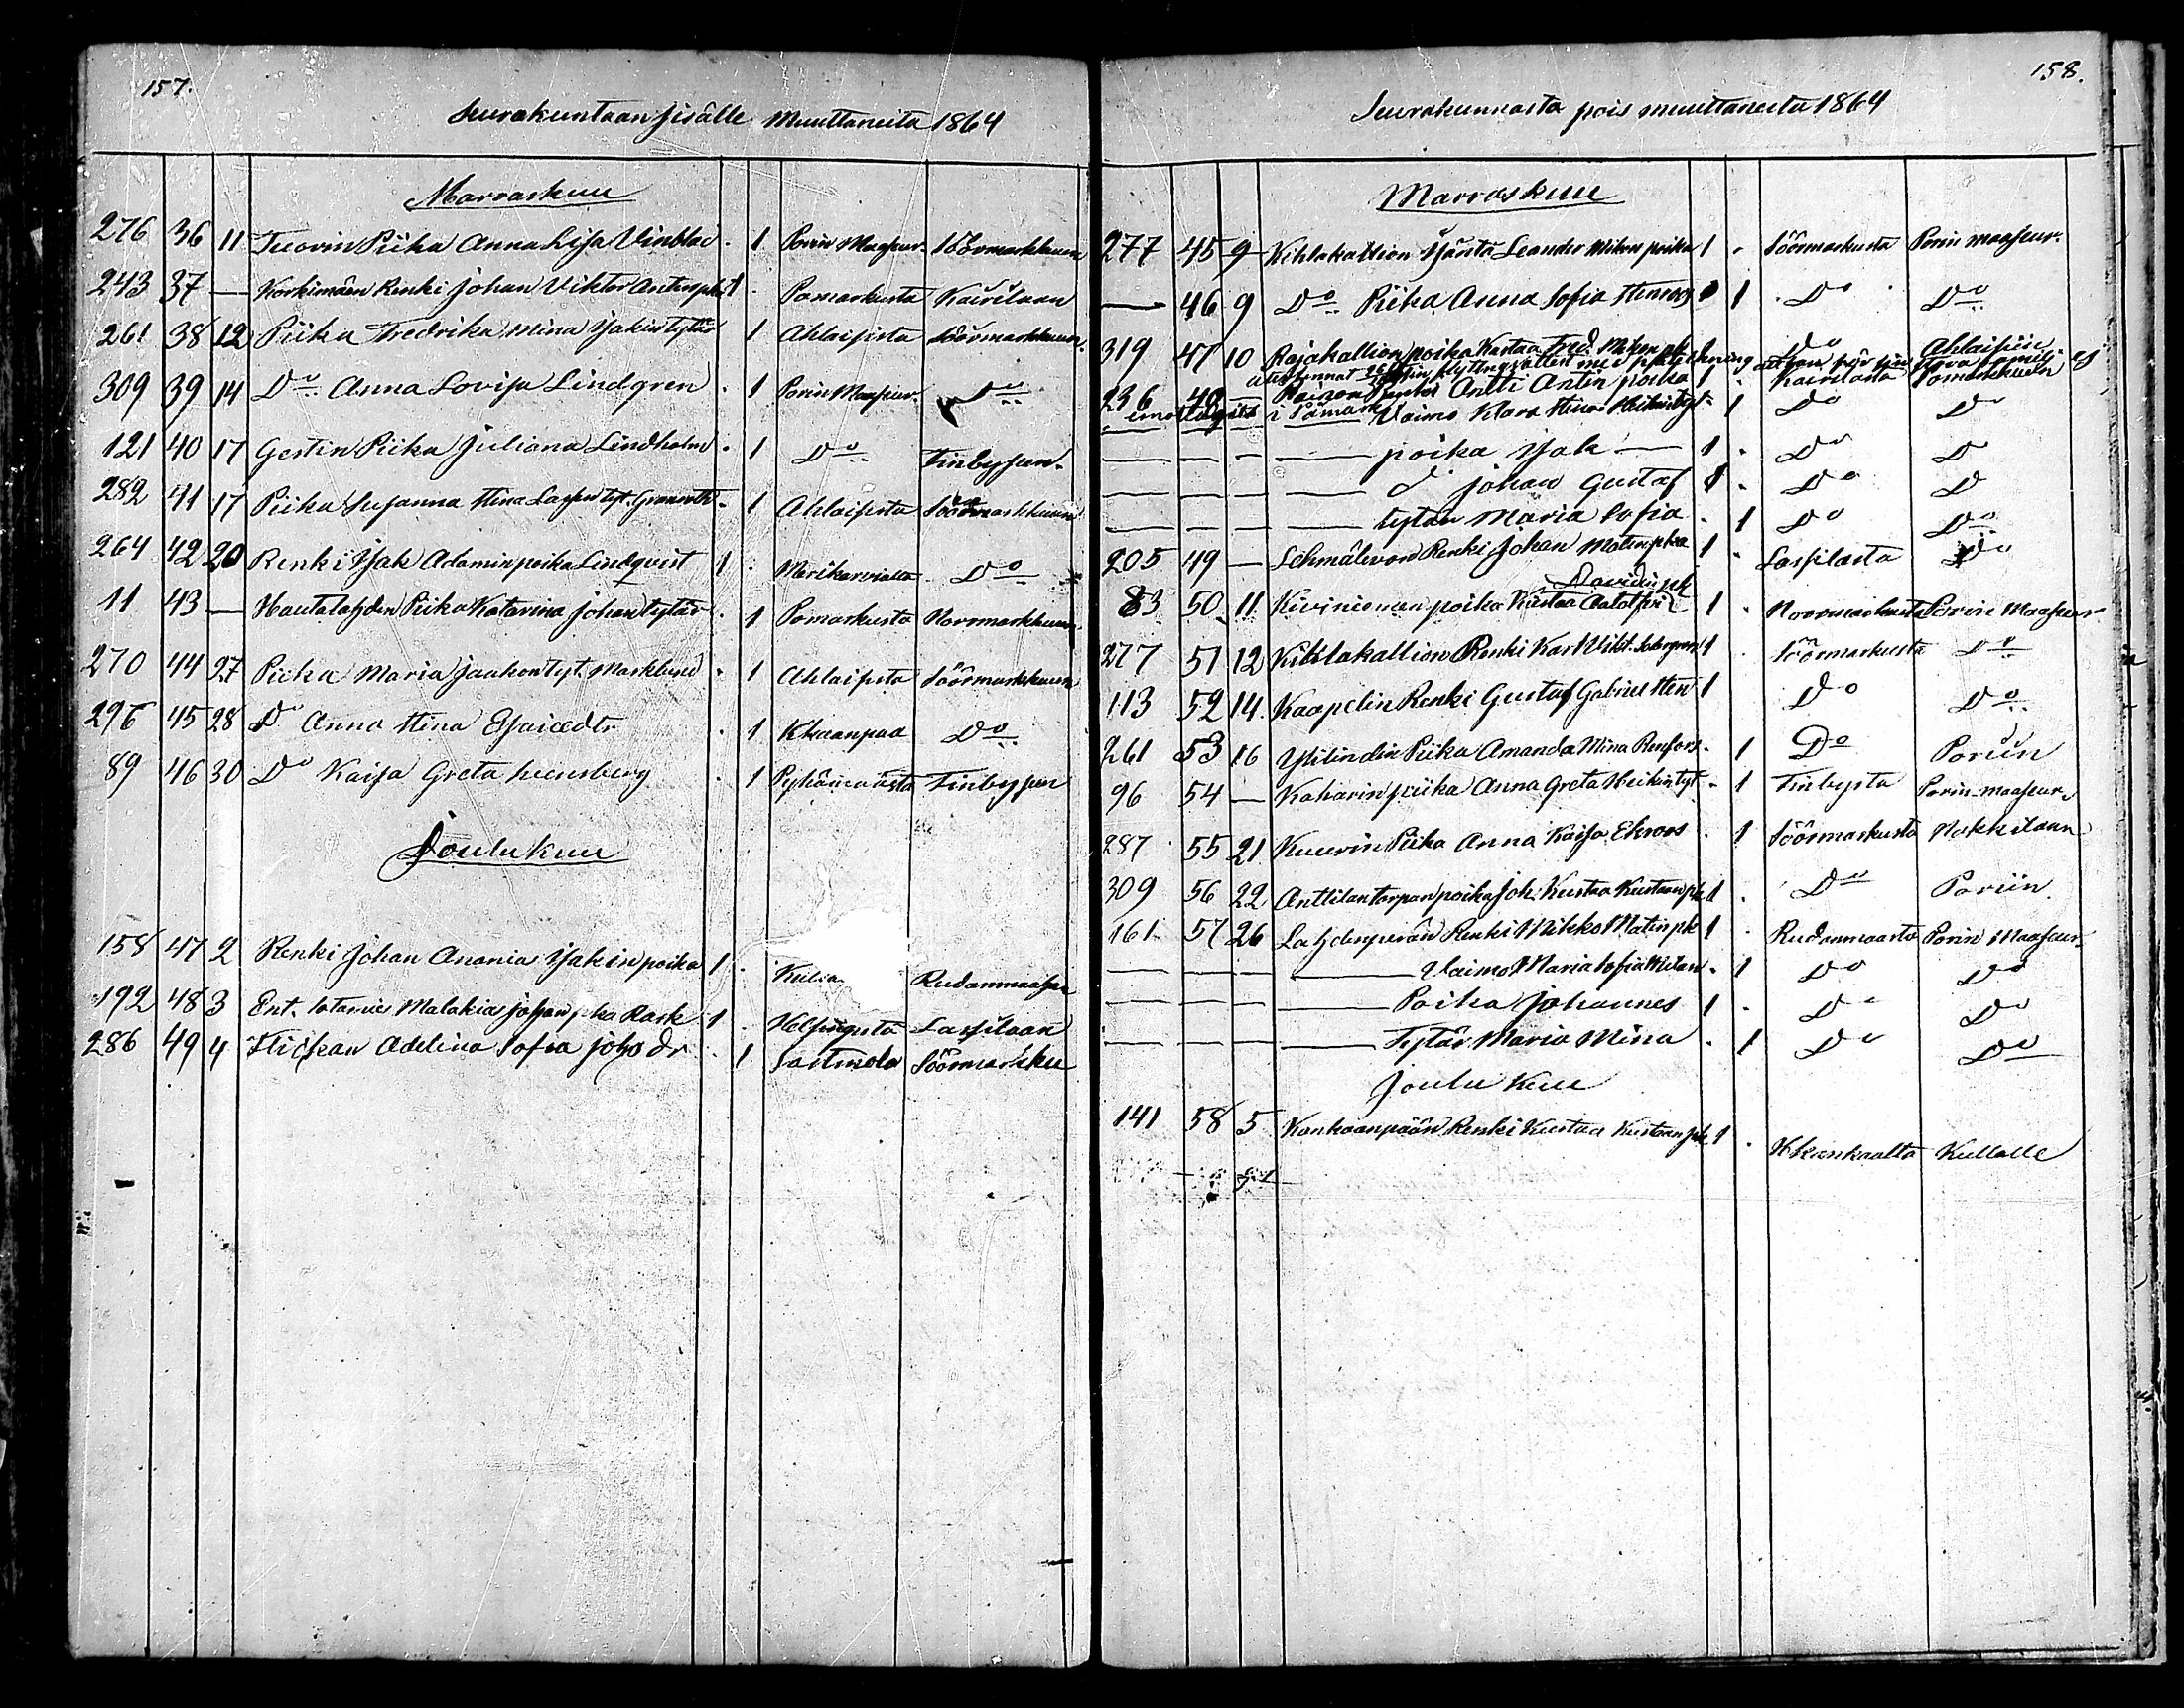 157.
Seurakuntaan sisälle Muuttaneita 1864
Marraskuu
276 36 11 Tuorin Piika Anna Lisa Vinblad . 1 Porin Maaseur. Söörmarkkuun
243 37 — Korkimäen Renki Johan Viktor Antinpka 1 . Pomarkusta Kairilaan
261 38 12 Piika Fredrika Mina Isakin tytär 1 Ahlaisista Söörmarkkuun.
309 39 14 Do Anna Lovisa Lindgren . 1 Porin Maaseur. Do
121 40 17 Gestin Piika Juliana Lindholm . 1 Do Finbysen.
282 41 17 Piika Susanna Hina tyt. Granroth . 1 Ahlaisista Söörmarkkuun
264 42 20 Renki Isak Adaminpoika Lindqvist 1 . Merikarvialta Do
11 43 — Hautalahden Piika Katarina Johan tytär . 1 Pomarkusta Norrmarkkuun.
270 44 27 Piika Maria Jaakon tyt. Marklund . 1 Ahlaisista Söörmarkkuun
296 45 28 Do Anna Hina Esaiædtr . 1 Khaanpaa Do
89 46 30 Do Kaisa Greta . 1 Pyhämaasta Finbysen
Joulukuu
158 47 2 Renki Johan Ananias Isakin poika 1 . Rudanmaasen
192 48 3 Ent. sotamies Malakias Johan pka Rask 1 . Helsingista Lassilaan
286 49 4 Flickan Adelina Sofia Johs dr . 1 Sastmola Söörmarkku
158.
Seurakunnasta pois muuttaneita 1864
Marraskuu
277 45 9 Kihlakallion Isäntä Leander Mikon poika 1 . Söörmarkusta Porin maaseur.
— 46 9 Do Piika Anna Sofia 1 Do Do
319 47 10 Rajakallion poika Kustaa Fred. Mikon pk 1 Do Ahlaisiin
236 48 — Antti Antin poika 1 . Kairilasta Pomarkkuun
i Påmark Vaimo Klara Hina Heikintyt . 1 Do Do
— — — — poika Isak — 1 . Do D
— — — — d Johan Gustaf 1 . Do D
— — — — tytär Maria Sofia . 1 Do Do
205 49 — Renki Johan Matinpka 1 . Lassilasta Do
Davidin pk
83 50 11 Kiviniemen poika Kustaa 1 . Norrmarkusta Porin Maaseur
277 51 12 Kihlakallion Renki Karl Vikt. 1 . Söörmarkusta Do
113 52 14 Kaapelin Renki Gustaf Gabriel 1 Do Do
261 53 16 Ylilindin Piika Amanda Mina Renfors . 1 Do Poriin
96 54 — Kaharin piika Anna Greta Heikintyt . 1 Finbysta Porin maaseur.
287 55 21 Kuurin Piika Anna Kaisa Ekroos . 1 Söörmarkusta Nakkilaan
309 56 22 Anttilan torpan poika Joh. Kustaa Kustaan pk 1 . Do Poriin
161 57 26 Lahdenperän Renki Mikko Matin pk 1 . Rudanmaasta Porin Maaseur.
— — — — Vaimo Maria Sofia . 1 Do Do
— — — — Poika Johannes 1 . Do Do
— — — — Tytär Maria Mina . 1 Do Do
Joulu Kuu
141 58 5 Kankaanpään Renki Kustaa Kustaan pk 1 . Kullalle